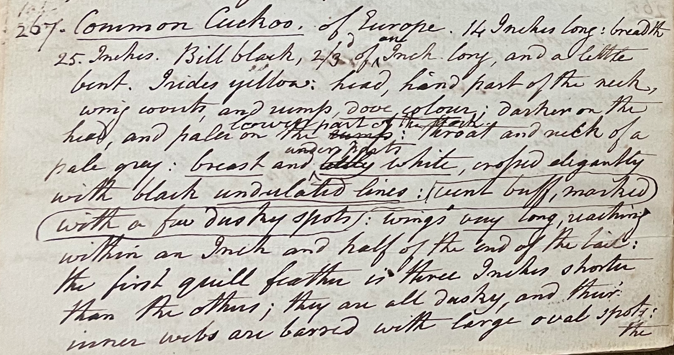 267. Common Cuckoo. of Europe. 14 Inches long: breadth
25. Inches. Bill black, 2/3d of one Inch long, and a little
bent. Irides yellow: head, hind part of the neck,
wing coverts, and rump, dove colour; darker on the
head, and paler on the rump lower part of the back: throat and neck of a
pale grey: breast and belly under parts white, crossed elegantly
with black undulated lines: (vent buff, marked
with a few dusky spots): wings very long, reaching
within an Inch and half of the end of the tail:
the first quill feather is three Inches shorter
than the others; they are all dusky, and their
inner webs are barred with large oval spots:
the